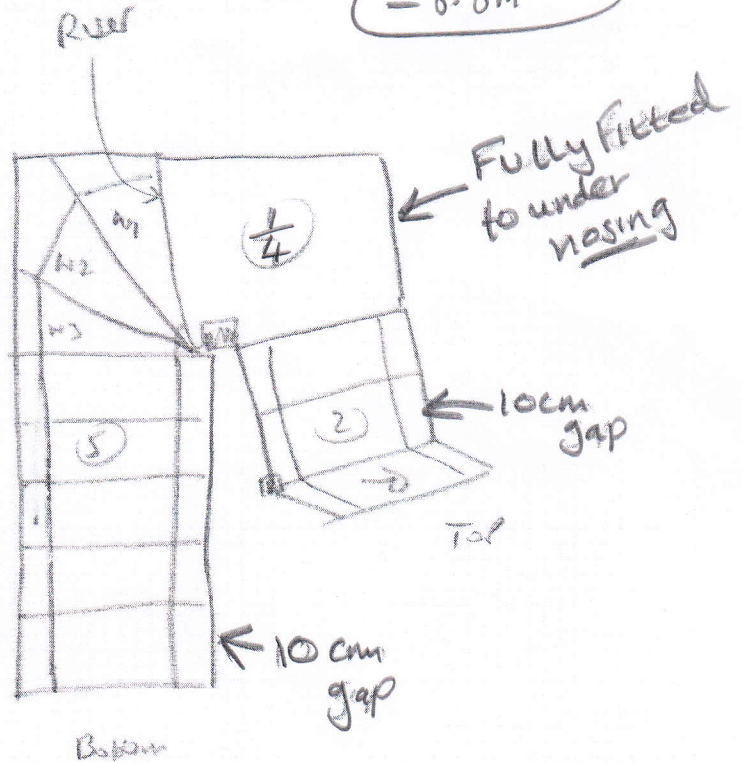 Riser
Fully Fitted
to under
nosing
1/4
W1
W2
W3
10cm
gap
2
5
Top
10 cm
gap
Bottom